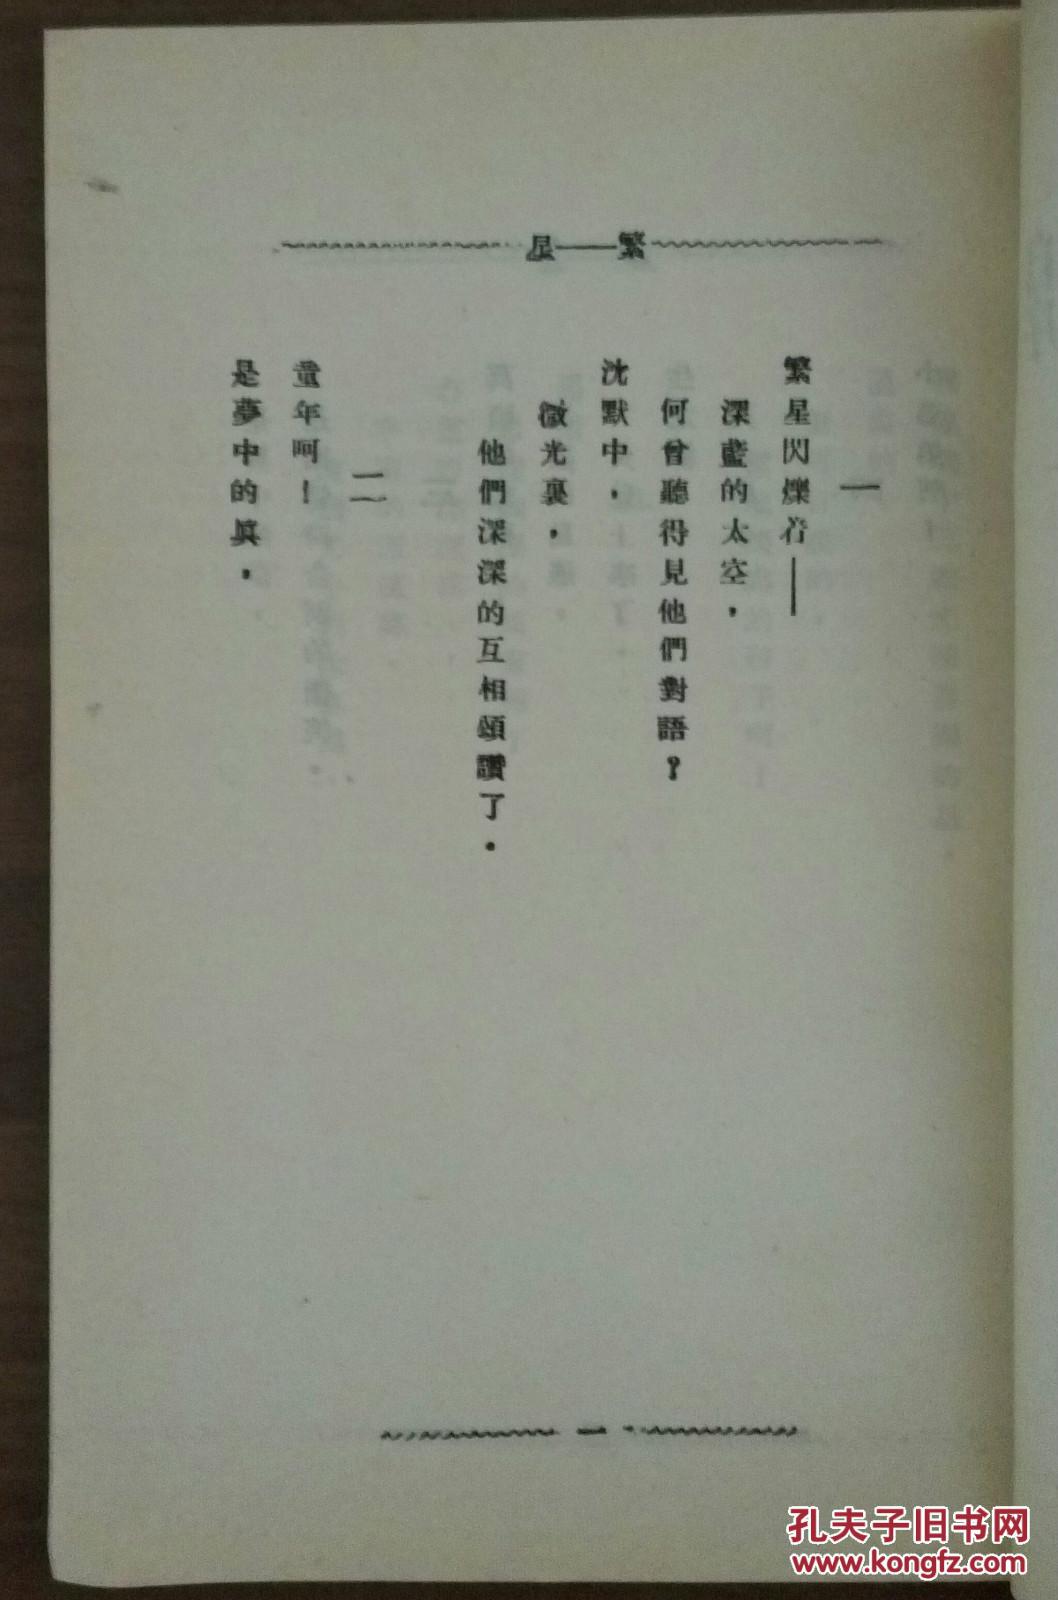 繁——星
一
繁星閃爍着——
深藍的太空，
何曾聽得見他們對語？
沈默中，
微光裏，
他們深深的互相頌讚了．
二
童年呵！
是夢中的眞，
一
孔夫子旧书网
www.kongfz.com